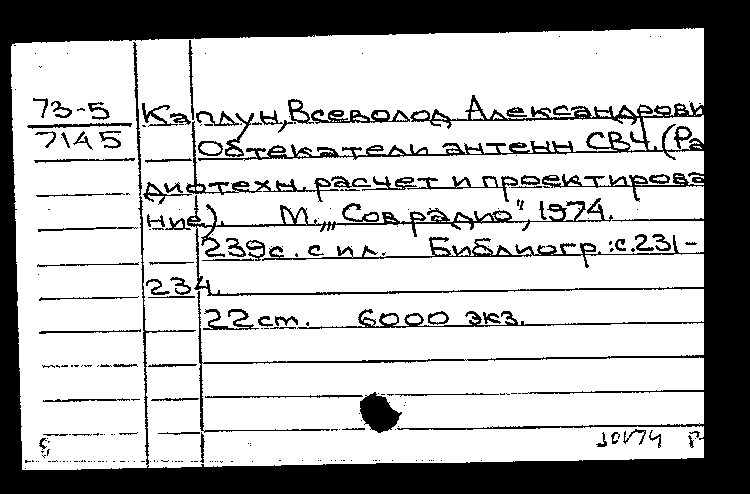 73-5
7145
Каплун, Всеволод Александрови
Обтекатели антенн СВЧ. (Ра
диотехн. расчет и проектирова
ние). М., „Сов радио", 1974.
239с. с ил. Библиогр.: с.231-
234.
22 ст. 6000 экз.